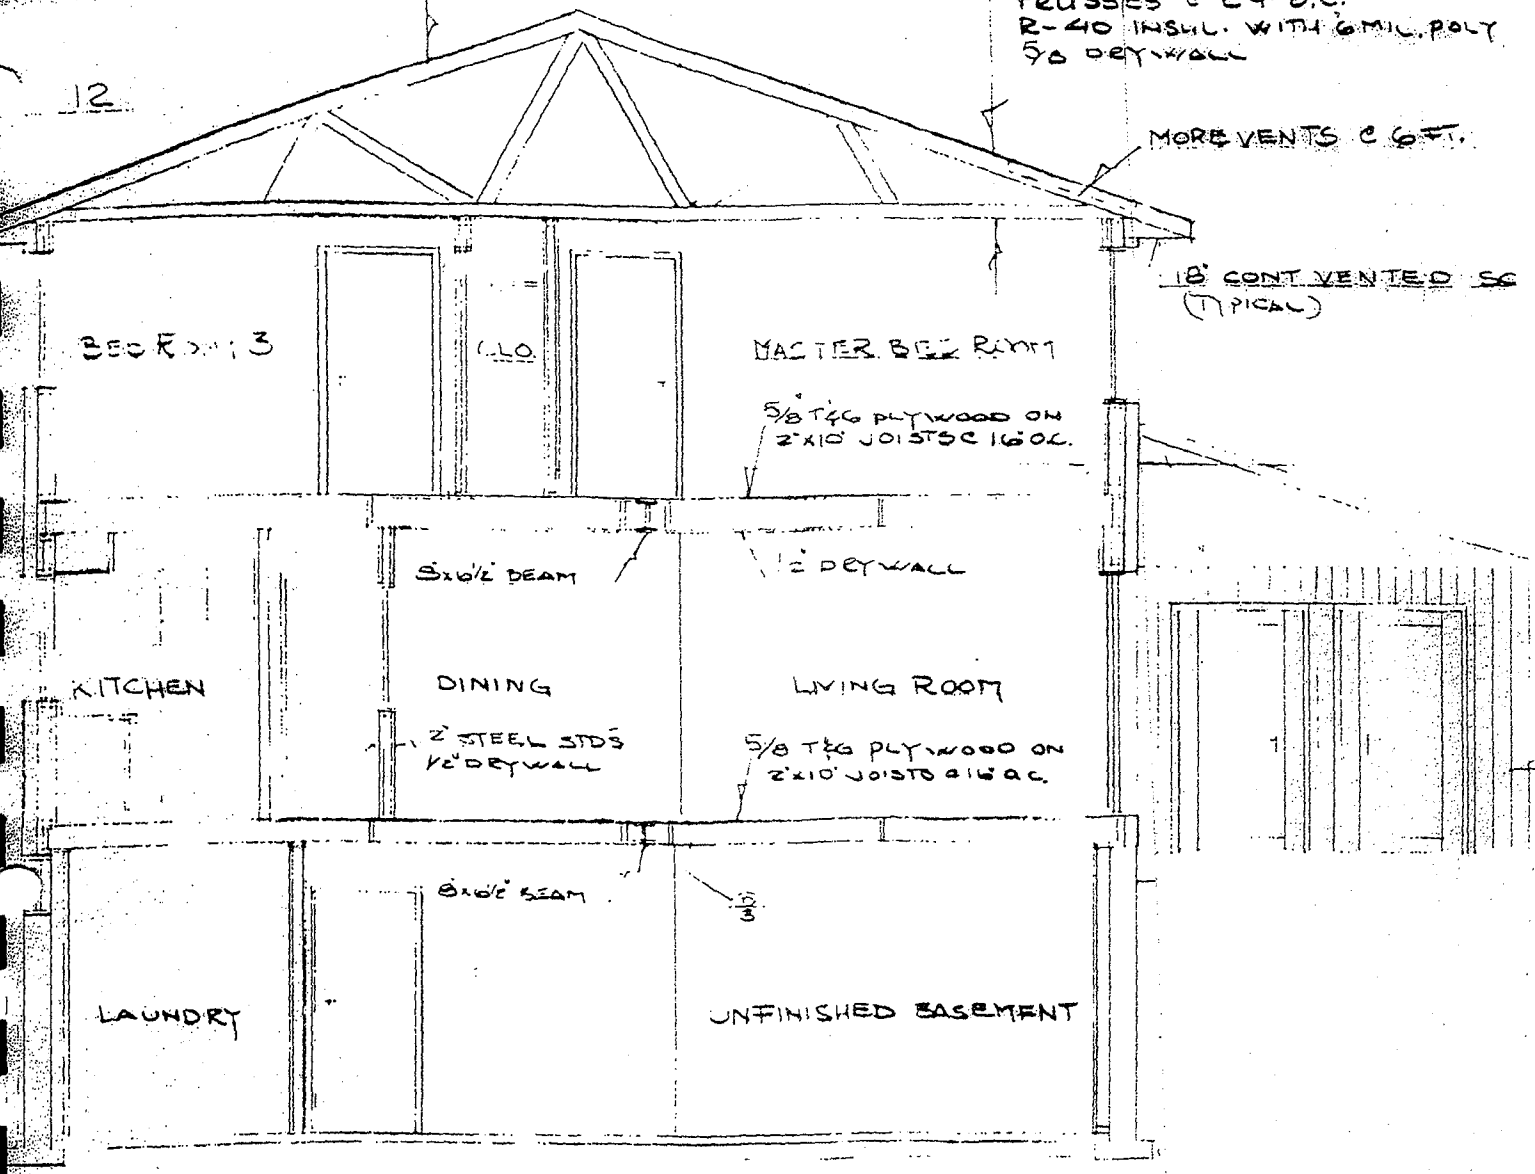 TRUSSES @ 24" O.C.
R-40 INSUL. WITH 6 MIL. POLY
5/8 DRYWALL
12
MORE VENTS @ 6 FT.
18" CONT VENTED
(TYPICAL)
BEDROOM 3
CLO.
MASTER BEDROOM
5/8" T&G PLYWOOD ON
2"x10" JOISTS @ 16" O.C.
8x6 1/2" BEAM
1/2" DRYWALL
KITCHEN
DINING
LIVING ROOM
2" STEEL STDS
1/2" DRYWALL
5/8 T&G PLYWOOD ON
2"x10" JOISTS @ 16" O.C.
8x6 1/2" BEAM
3
LAUNDRY
UNFINISHED BASEMENT